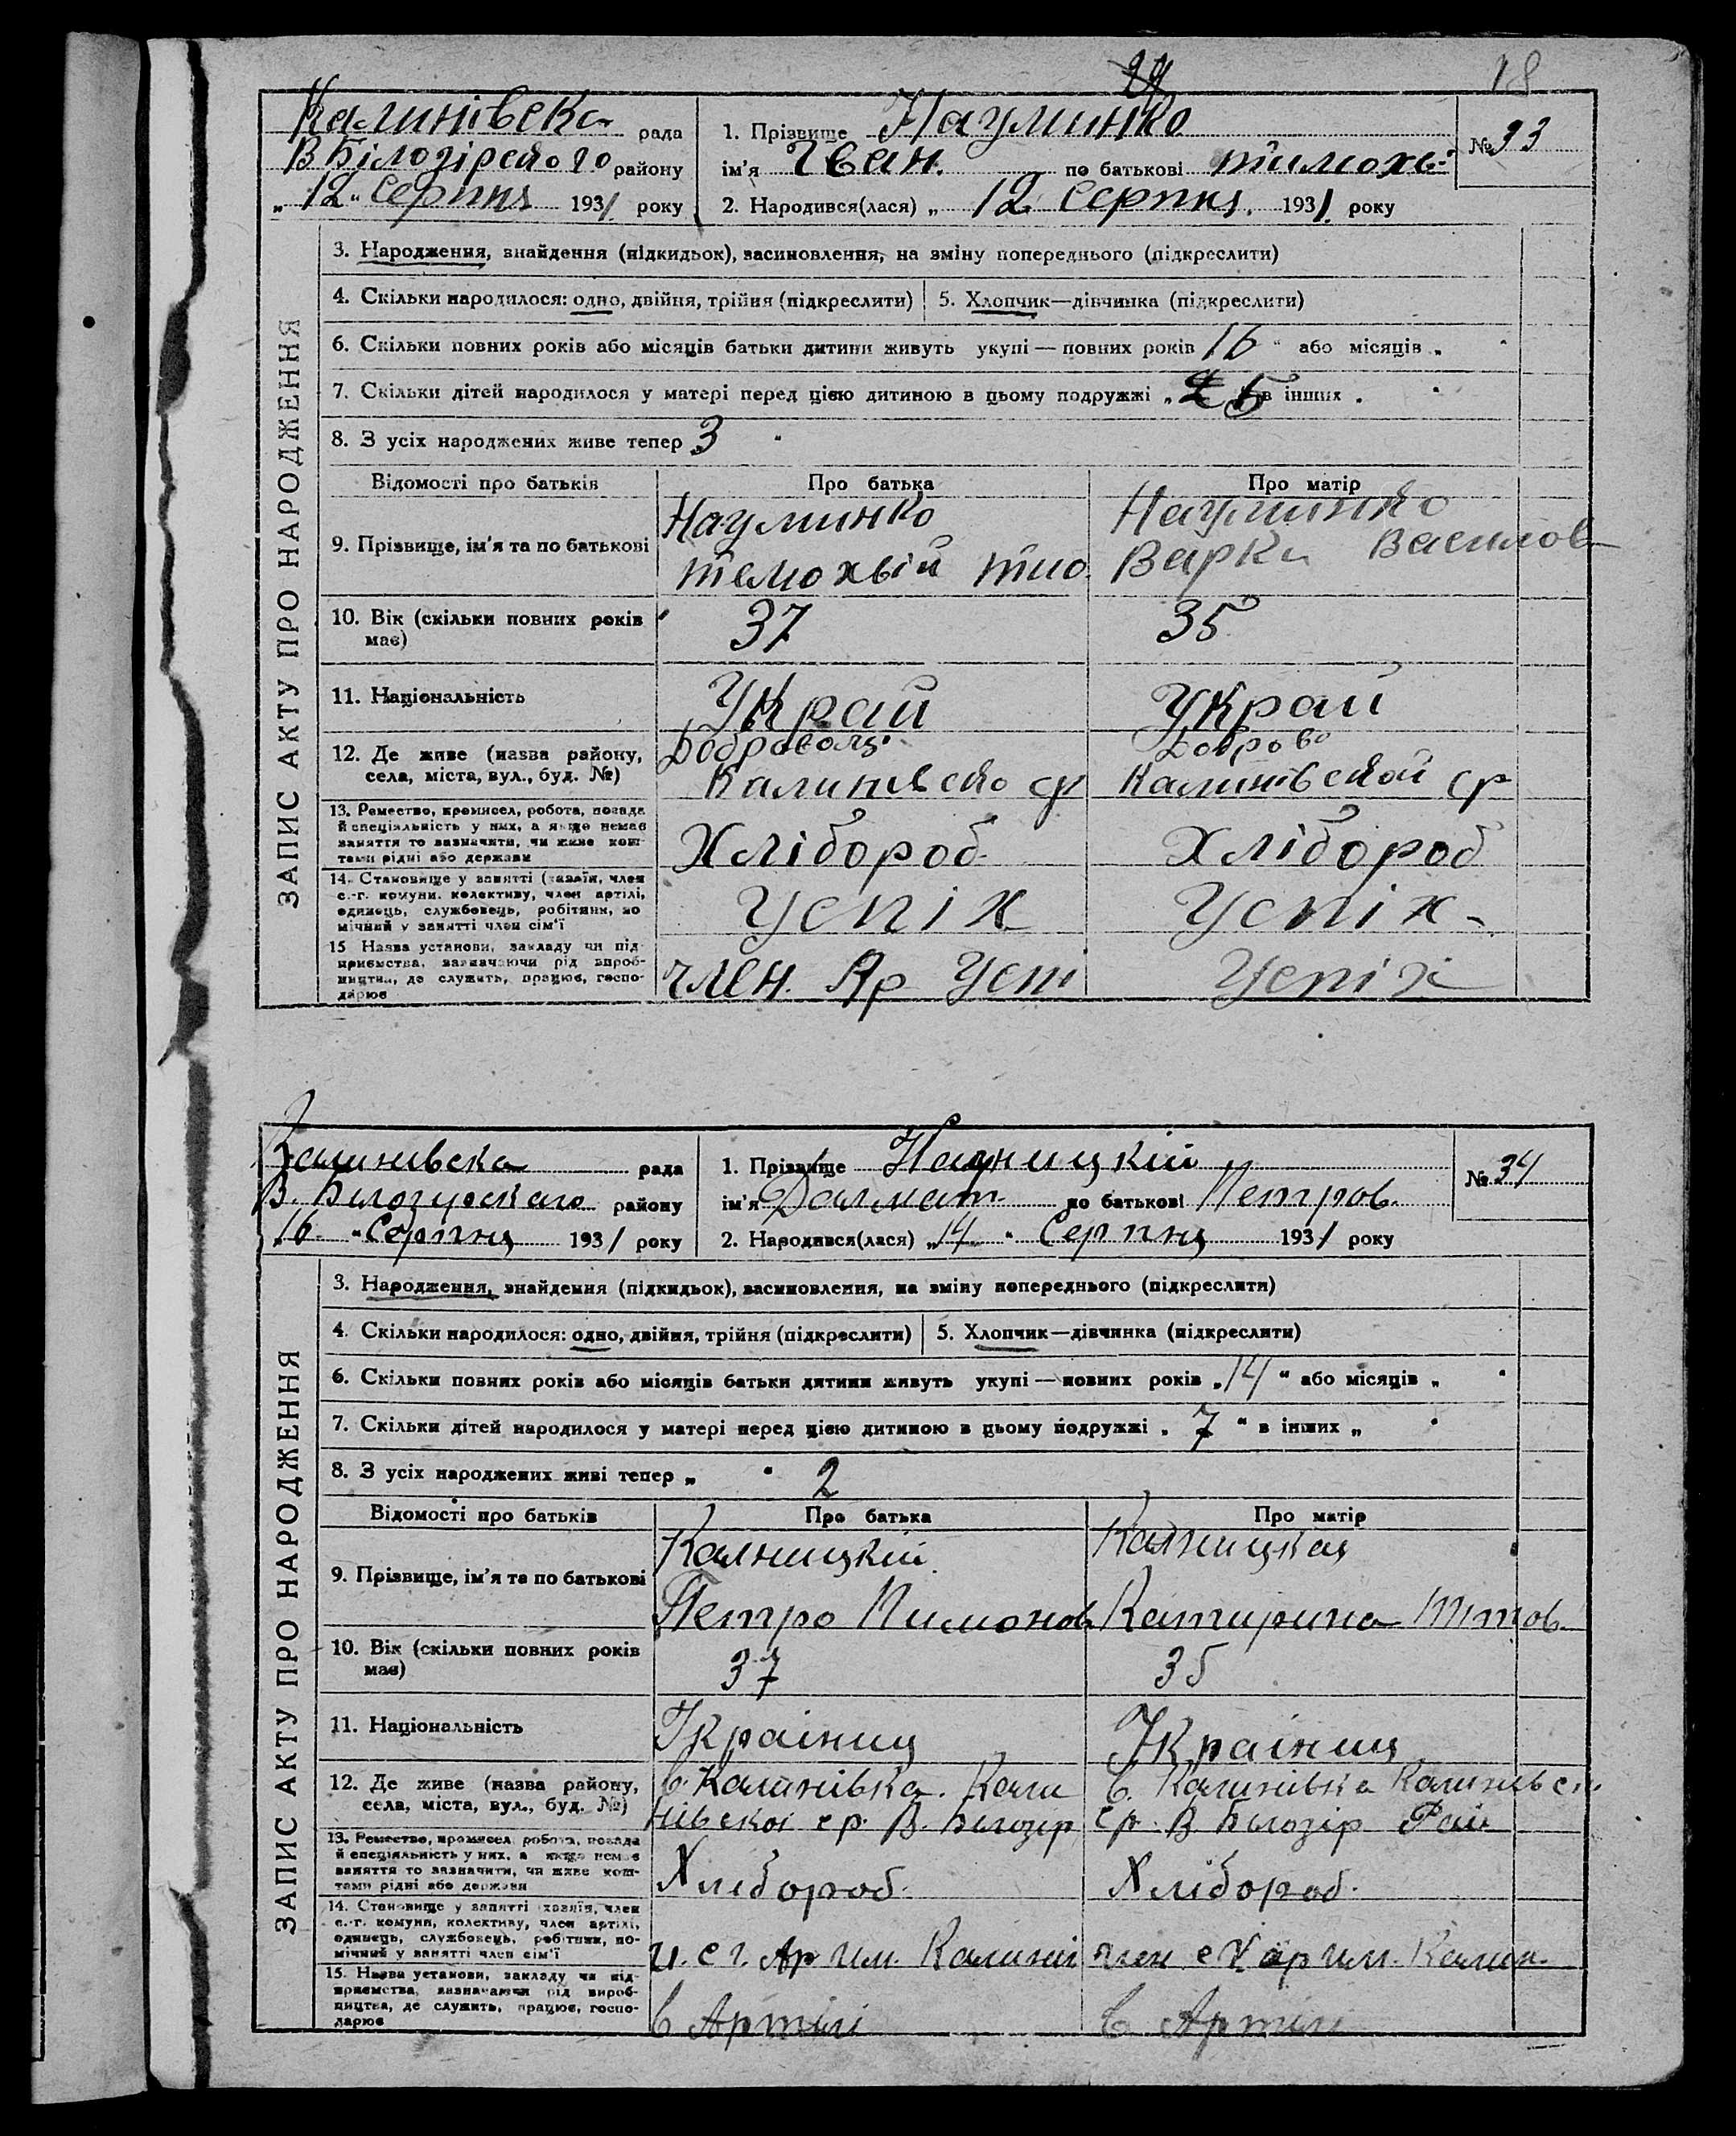 18
Калинівска рада
В Білозірского району
„12“ Серпня 1931 року
1. Прізвище Науминко
ім'я Іван. по батькові тимохв.
2. Народився(лася) „ 12 Серпня. 1931. року
№ 33
ЗАПИС АКТУ ПРО НАРОДЖЕННЯ
3. Народження, знайдення (підкидьок), засиновлення, на зміну попереднього (підкреслити)
4. Скільки народилося: одно, двійня, трійня (підкреслити) 5. Хлопчик—дівчинка (підкреслити)
6. Скільки повних років або місяців батьки дитини живуть укупі — повних років 16 “ або місяців „
7. Скільки дітей народилося у матері перед цією дитиною в цьому подружжі „ 5 в інших
8. З усіх народжених живе тепер 3
Відомості про батьків Про батька Про матір
9. Прізвище, ім'я та по батькові
Науминко
темохвій тио.
Науминко
Варка Васплов
10. Вік (скільки повних років має) 37 35
11. Національність Украй Украй
12. Де живе (назва району,
села, міста, вул., буд. №)
Доброволь.
Калинівско ср
Доброво
Калинівской ср
13. Ремество, промисел, робота, посада
й спеціяльність у них, а якщо немає
заняття то зазначити, чи живе кош-
тами рідні або держави
Хлібороб Хлібороб
14. Становище у занятті (хазяїн, член
с.-г. комуни, колективу, член артілі,
одинець, службовець, робітник, по
мічний у занятті член сім'ї
Успіх Успіх
15 Назва установи, закладу чи під-
приємства, зазначаючи рід вироб-
ництва, де служить, працює, госпо-
дарює
член. Ар Успі Успіх
Калинивска рада
В. Білозурскаго району
16. “Серпня 1931 року
1. Прізвище Калницкій
ім'я Далмат по батькові Петров.
2. Народився(лася) „14“ Серпня 1931 року
№ 34
ЗАПИС АКТУ ПРО НАРОДЖЕННЯ
3. Народження, знайдення (підкидьок), засиновлення, на зміну попереднього (підкреслити)
4. Скільки народилося: одно, двійня, трійня (підкреслити) 5. Хлопчик—дівчинка (підкреслити)
6. Скільки повних років або місяців батьки дитини живуть укупі — повних років „14“ або місяців „
7. Скільки дітей народилося у матері перед цією дитиною в цьому подружжі „ 7 “ в інших „
8. З усіх народжених живі тепер „ “ 2
Відомості про батьків Про батька Про матір
9. Прізвище, ім'я та по батькові
Калницкій
Петро Пимонов
Калницкая
Катирина Тітов.
10. Вік (скільки повних років має) 37 35
11. Національність Украіниц Украіниц
12. Де живе (назва району,
села, міста, вул., буд. №)
С. Калинівка. Кали
нівскоі ср. В. Білозір
С. Калинівка Калинівск.
ср. В Білозір Рай
13. Ремество, промисел робота, посада
й спеціяльність у них, а якщо немає
заняття то зазначити, чи живе кош-
тами рідні або держави
Хлібороб. Хлібороб.
14. Становище у занятті (хазяїн, член
с.-г. комуни, колективу, член артілі,
одинець, службовець, робітник, по-
мічний у занятті член сім'ї
ч. с г. Ар им. Калинін член с Х ар им. Калин.
15. Назва установи, закладу чи під-
приємства, зазначаючи рід вироб-
ництва, де служить, працює, госпо-
дарює
в Артілі в Артілі